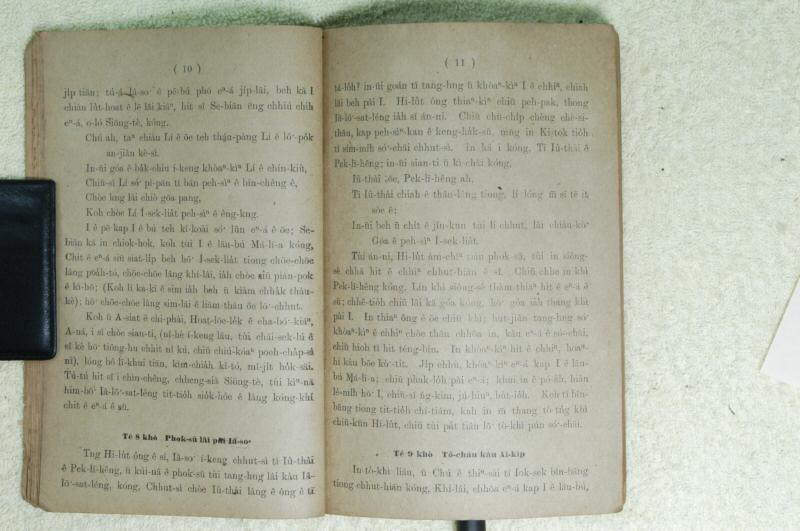 ( 10 )
ji̍p tiān; tú-á Iâ-so͘ ê pē-bú phō eⁿ-á ji̍p-lâi, beh kā I
chiàu lu̍t-hoat ê lē lâi kiâⁿ, hit sî Se-biān ēng chhiú chih
eⁿ-á, o-ló Siōng-tè, kóng,
Chú ah, taⁿ chiàu Lí ê ōe teh thàu-pàng Lí ê lô͘-po̍k
an-jiân kè-sì.
In-ūi góa ê ba̍k-chiu í-keng khòaⁿ-kìⁿ Lí ê chín-kiù,
Chiū-sī Lí só͘ pī-pān tī bān peh-sìⁿ ê bīn-chêng ê,
Chòe kng lâi chiò gōa pang,
Koh chòe Lí Í-sek-lia̍t peh-sìⁿ ê êng-kng.
I ê pē kap I ê bú teh kî-koài só͘ lūn eⁿ-á ê ōe; Se-
biān kā in chiok-hok, koh tùi I ê lāu-bú Má-lī-a kóng,
Chit ê eⁿ-á siū siat-li̍p beh hō͘ Í-sek-lia̍t tiong chōe-chōe
lâng poa̍h-tó, chōe-chōe lâng khí-lâi, ia̍h chòe siū piān-pok
ê kì-hō; (Koh lí ka-kī ê sim ia̍h beh ū kiàm chha̍k thàu-
kè); hō͘ chōe-chōe lâng sim-lāi ê liām-thâu ōe lō͘-chhut.
Koh ū A-siat ê chi-phài, Hoat-lōe-le̍k ê cha-bó͘-kiáⁿ,
A-ná, i sī chòe sian-ti, (nî-hè í-keng lāu, tùi chāi-sek-lú ê
sî kè hō͘ tiōng-hu chhit nî kú, chiū chiú-kóaⁿ poeh-cha̍p-sì
nî), lóng bô lī-khui tiān, kìm-chia̍h kî-tó, mî-ji̍t ho̍k-sāi.
Tú-tú hit sî i chìn-chêng, chheng-siā Siōng-tè, tùi kìⁿ-nā
him-bō͘ Iâ-lō͘-sat-léng tit-tio̍h sio̍k-hôe ê lâng kóng-khí
chit ê eⁿ-á ê sū.
Tē 8 khò Phok-sū lâi pài Iâ-so͘
Tng Hi-lu̍t ông ê sî, Iâ-so͘ í-keng chhut-sì tī Iû-thài
ê Pek-lī-hêng, ū kúi-nā ê phok-sū tùi tang-hng lâi kàu Iâ-
lō͘-sat-léng, kóng, Chhut-sì chòe Iû-thài lâng ê ông ê tī
( 11 )
tá-lo̍h? in-ūi goán tī tang-hng ū khòaⁿ-kìⁿ I ê chhiⁿ, chiah
lâi beh pài I. Hi-lu̍t ông thiaⁿ-kìⁿ chiū peh-pak, thong
Iâ-lō͘-sat-léng ia̍h sī án-ni. Chiū chū-chi̍p chèng chè-si-
thâu, kap peh-sìⁿ-kan ê keng-ha̍k-sū, mn̄g in Ki-tok tio̍h
tī sím-mi̍h só͘-chāi chhut-sì. In kā i kóng, Tī Iû-thài ê
Pek-lī-hêng; in-ūi sian-ti ū kì-chài kóng,
Iû-thài ōe, Pek-lī-hêng ah,
Tī Iû-thài chiah ê thâu-lâng tiong, lí lóng m̄ sī tē it
sòe ê;
In-ūi beh ū chi̍t ê jîn-kun tùi lí chhut, lâi chiàu-kò͘
Góa ê peh-sìⁿ Í-sek-lia̍t.
Tùi án-ni, Hi-lu̍t àm-chīⁿ tiàu phok-sū, tùi in siông-
sè chhâ hit ê chhiⁿ chhut-hiān ê sî. Chiū chhe in khì
Pek-lī-hêng kóng, Lín khì siông-sè thàm thiaⁿ hit ê eⁿ-á ê
sū; chhē-tio̍h chiū lâi kā góa kóng, hō͘ góa ia̍h thang khì
pài I. In thiaⁿ ông ê ōe chiū khì; hut-jiân tang-hng só͘
khòaⁿ-kìⁿ ê chhiⁿ chòe thâu chhōa in, kàu eⁿ-á ê só͘-chāi,
chiū hioh tī hit téng-bīn. In khòaⁿ-kìⁿ hit ê chhiⁿ, hoaⁿ-
hí kàu bōe kò͘-tit. Ji̍p chhù, khòaⁿ-kìⁿ eⁿ-á kap I ê lāu-
bú Má-lī-a; chiū phak-lo̍h pài eⁿ-á; khui in ê pó-a̍h, hiàn
lé-mi̍h hō͘ I, chiū-sī n̂g-kim, jú-hiuⁿ, bu̍t-io̍h. Koh tī bîn-
bāng tiong tit-tio̍h chí-tiám, kah in m̄ thang tò-tńg khì
chiū-kūn Hi-lu̍t, chiū tùi pa̍t tiâu lō͘ tò-khì pún só͘-chāi.
Tē 9 khò Tô-cháu kàu Ai-ki̍p
In tò-khì liáu, ū Chú ê thiⁿ-sài tī Iok-sek bîn-bāng
tiong chhut-hiān kóng, Khí-lâi, chhōa eⁿ-á kap I ê lāu-bú,